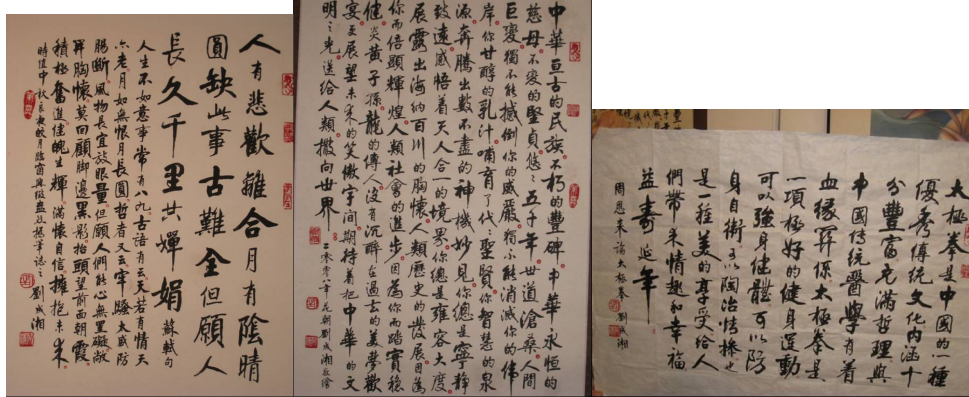 人有悲歡離合月有陰晴
圓缺此事古難全但願人
長久千里共嬋娟 蘇軾句
人生不如意事常有八九古語有云天若有情天
亦老月如無恨月長圓哲者又云牢騷太盛防
腸斷風物長宜放眼量但願人們能心無罣礙敞
開胸懷莫回顧腳邊黑影抬頭望前面朝霞
積極奮進佳魄生輝滿懷自信擁抱未來
劉成湘
中華亘古的民族不朽的豐碑中華永恒的
慈母不变的堅貞悠悠五千年世道滄桑人間
巨變獨不能撼倒你的威嚴獨不能消滅你的偉
岸你甘醇的乳汁哺育了代代聖賢你智慧的泉
源奔騰出數不盡的神機妙見你總是寧靜
致遠感悟着天人合一的境界你總是雍容大度
展露出海納百川的胸懷人類歷史的發展因為
你而倍顯輝煌人類社會的進步因為你而踏實穩
健炎黃子孫龍的傳人沒有沉醉在過去的美夢歡
宴裏展望未来的笑傲宇間期待着把中華的文
明之光送給人類撒向世界
太極拳是中國的一種
優秀傳統文化内涵十
分豐富充滿哲理與
中國傳統醫學有着
血缘關係太極拳是
一項極好的健身運動
可以強身健體可以防
身自衛可以陶冶情操也
是一種美的享受給人
們帶来情趣和幸福
益壽延年
周恩来論太極拳
劉成湘